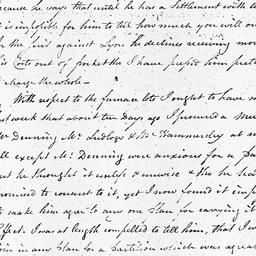 because he says that until he has a Settlement with
it is impossible for him to tell how much you will
the suit against you he declines receiving
his Costs out of pocket tho I have
charge the whole—
With respect to the furnace lots I ought to have
last week that about ten days ago I procured a
Mr Denning Mr Ludlow & Mr Hammersley at
all except Mr Denning were anxious for a
but he thought it useless & unwise & tho he
promised to consent to it, yet I now found it
to make him agree to any one plan for carrying it
effect. I was at length compelled to tell him, that I
join in any plan for a partition which was